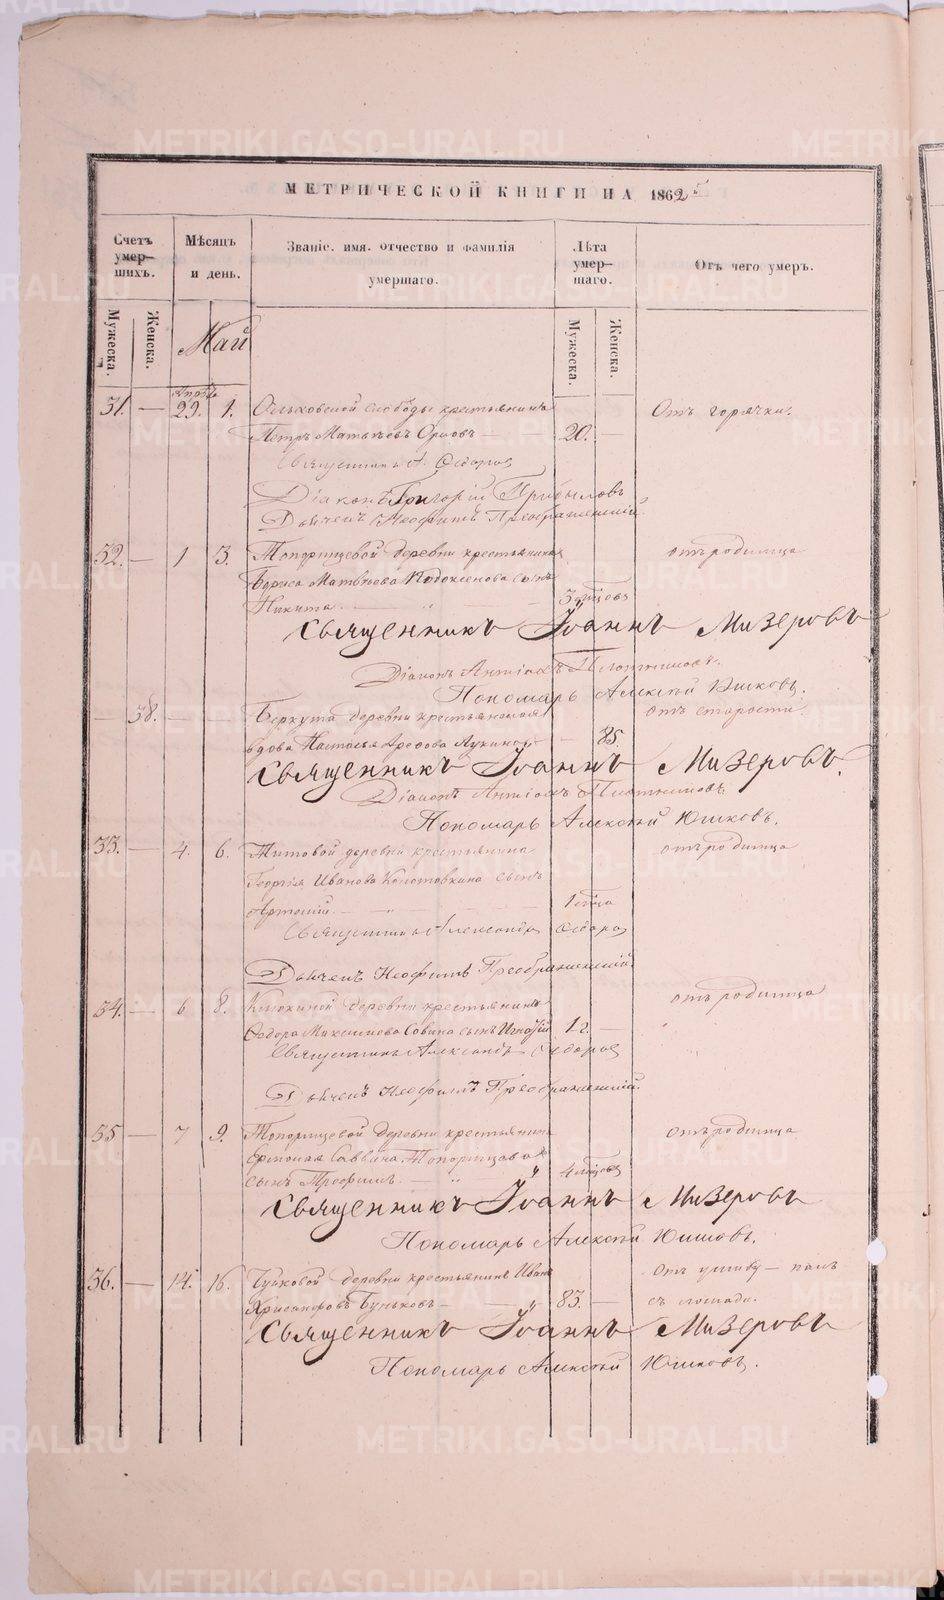 МЕТРИЧЕСКОЙ КНИГИ НА 1862 5
Счетъ умер-шихъ.
Мѣсяцъ и день.
Званіе. имя. отчество и фамилія умершаго.
Лѣта умер-шаго.
Отъ чего умеръ.
Мужеска.
Женска.
Май
Мужеска.
Женска.
Апрѣль
31. — 29. 1. слободы крестьянинъ Отъ горячки.
Петръ Матвѣевъ Орловъ — 20. —
Священникъ А. Ѳедоровъ
Діаконъ Григорій Прибыловъ
Дьячекъ Неофитъ Преображенскій.
32. — 1 3. Топорищевой деревни крестьянина отъ родимца
Бориса Матвѣева сынъ
Никита. — " — 3 мѣсяцовъ
Священникъ Іоаннъ Мизеровъ
Діаконъ Антіохъ Плотниковъ.
Пономарь Алексѣй Юшковъ.
— 38. — — Беркута деревни крестьянская отъ старости.
вдова Настасья — 85.
Священникъ Іоаннъ Мизеровъ.
Діаконъ Антіохъ Плотниковъ.
Пономарь Алексѣй Юшковъ.
33. — 4. 6. Титовой деревни крестьянина отъ родимца
Георгія Иванова сынъ
Артемій. — " — 1 мѣсяца
Священникъ Александръ Ѳедоровъ
Дьячекъ Неофитъ Преображенскій
34. — 6 8. Клюкиной деревни крестьянина отъ родимца
Ѳедора Максимова Савина сынъ Игнатій 1 г. —
Священникъ Александръ Ѳедоровъ
Дьячекъ Неофитъ Преображенскій.
35 — 7 9. Топорищевой деревни крестьянина отъ родимца
Ермолая Саввина Топорищева
сынъ Трофимъ. — " — " 4 мѣсяцовъ
Священникъ Іоаннъ Мизеровъ
Пономарь Алексѣй Юшковъ.
36. — 14. 16. деревни крестьянинъ Иванъ Отъ ушибу — палъ
Хрисанфовъ Буньковъ — " 83. — съ лошади.
Священникъ Іоаннъ Мизеровъ
Пономарь Алексѣй Юшковъ.
METRIKI.GASO-URAL.RU